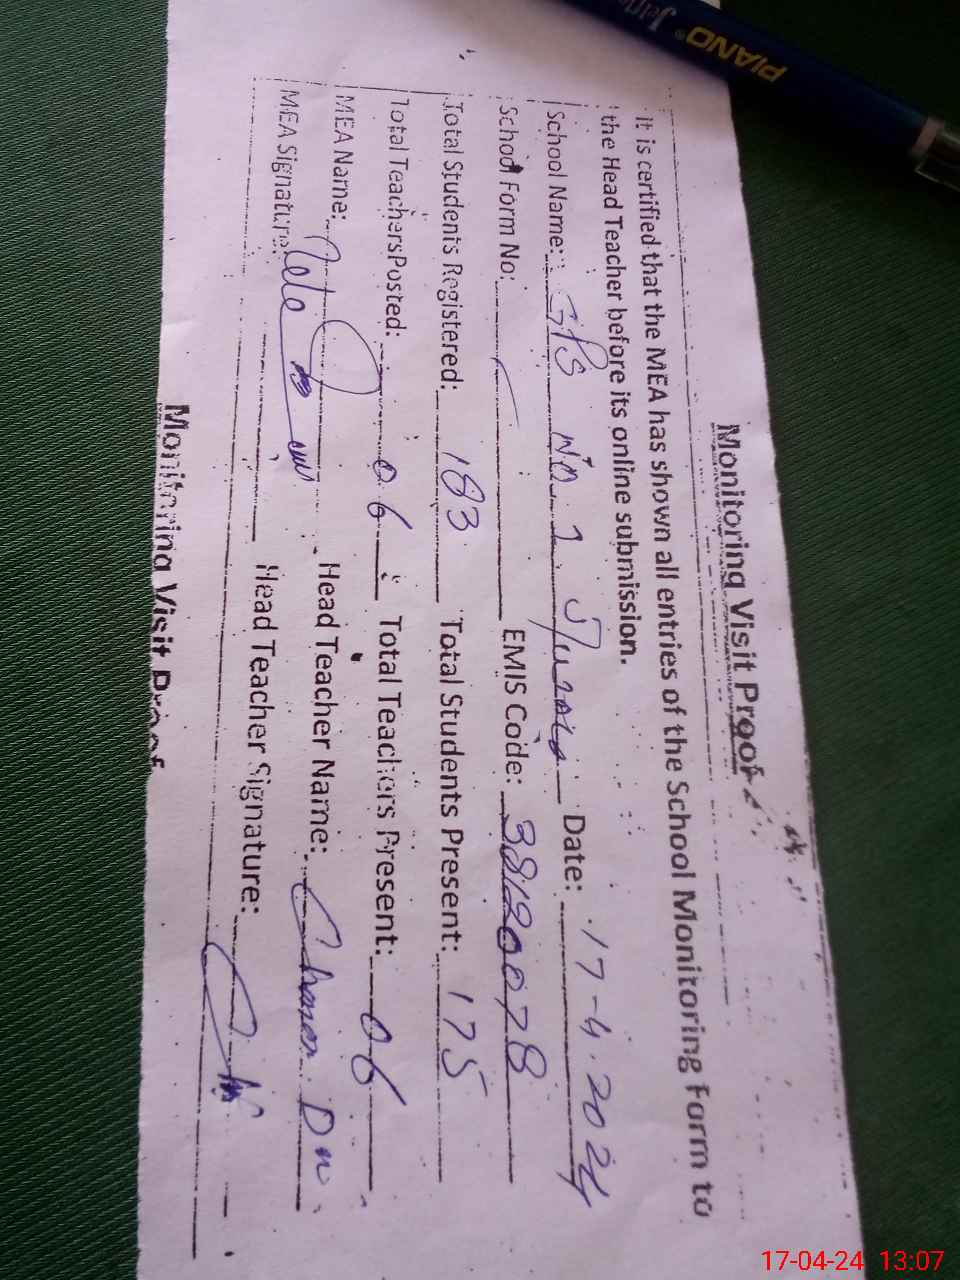 PIANO
Monitoring Visit Proof
It is certified that the MEA has shown all entries of the School Monitoring Form to
the Head Teacher before its online submission.
School Name: GPS No. 1 Date: 17-4-2024
School Form No: EMIS Code: 38120078
Total Students Registered: 183 Total Students Present: 175
Total Teachers Posted: 06 Total Teachers Present: 06
MEA Name: Head Teacher Name: Chaman Din
MEA Signature: Head Teacher Signature:
Monitoring Visit Proof
17-04-24 13:07